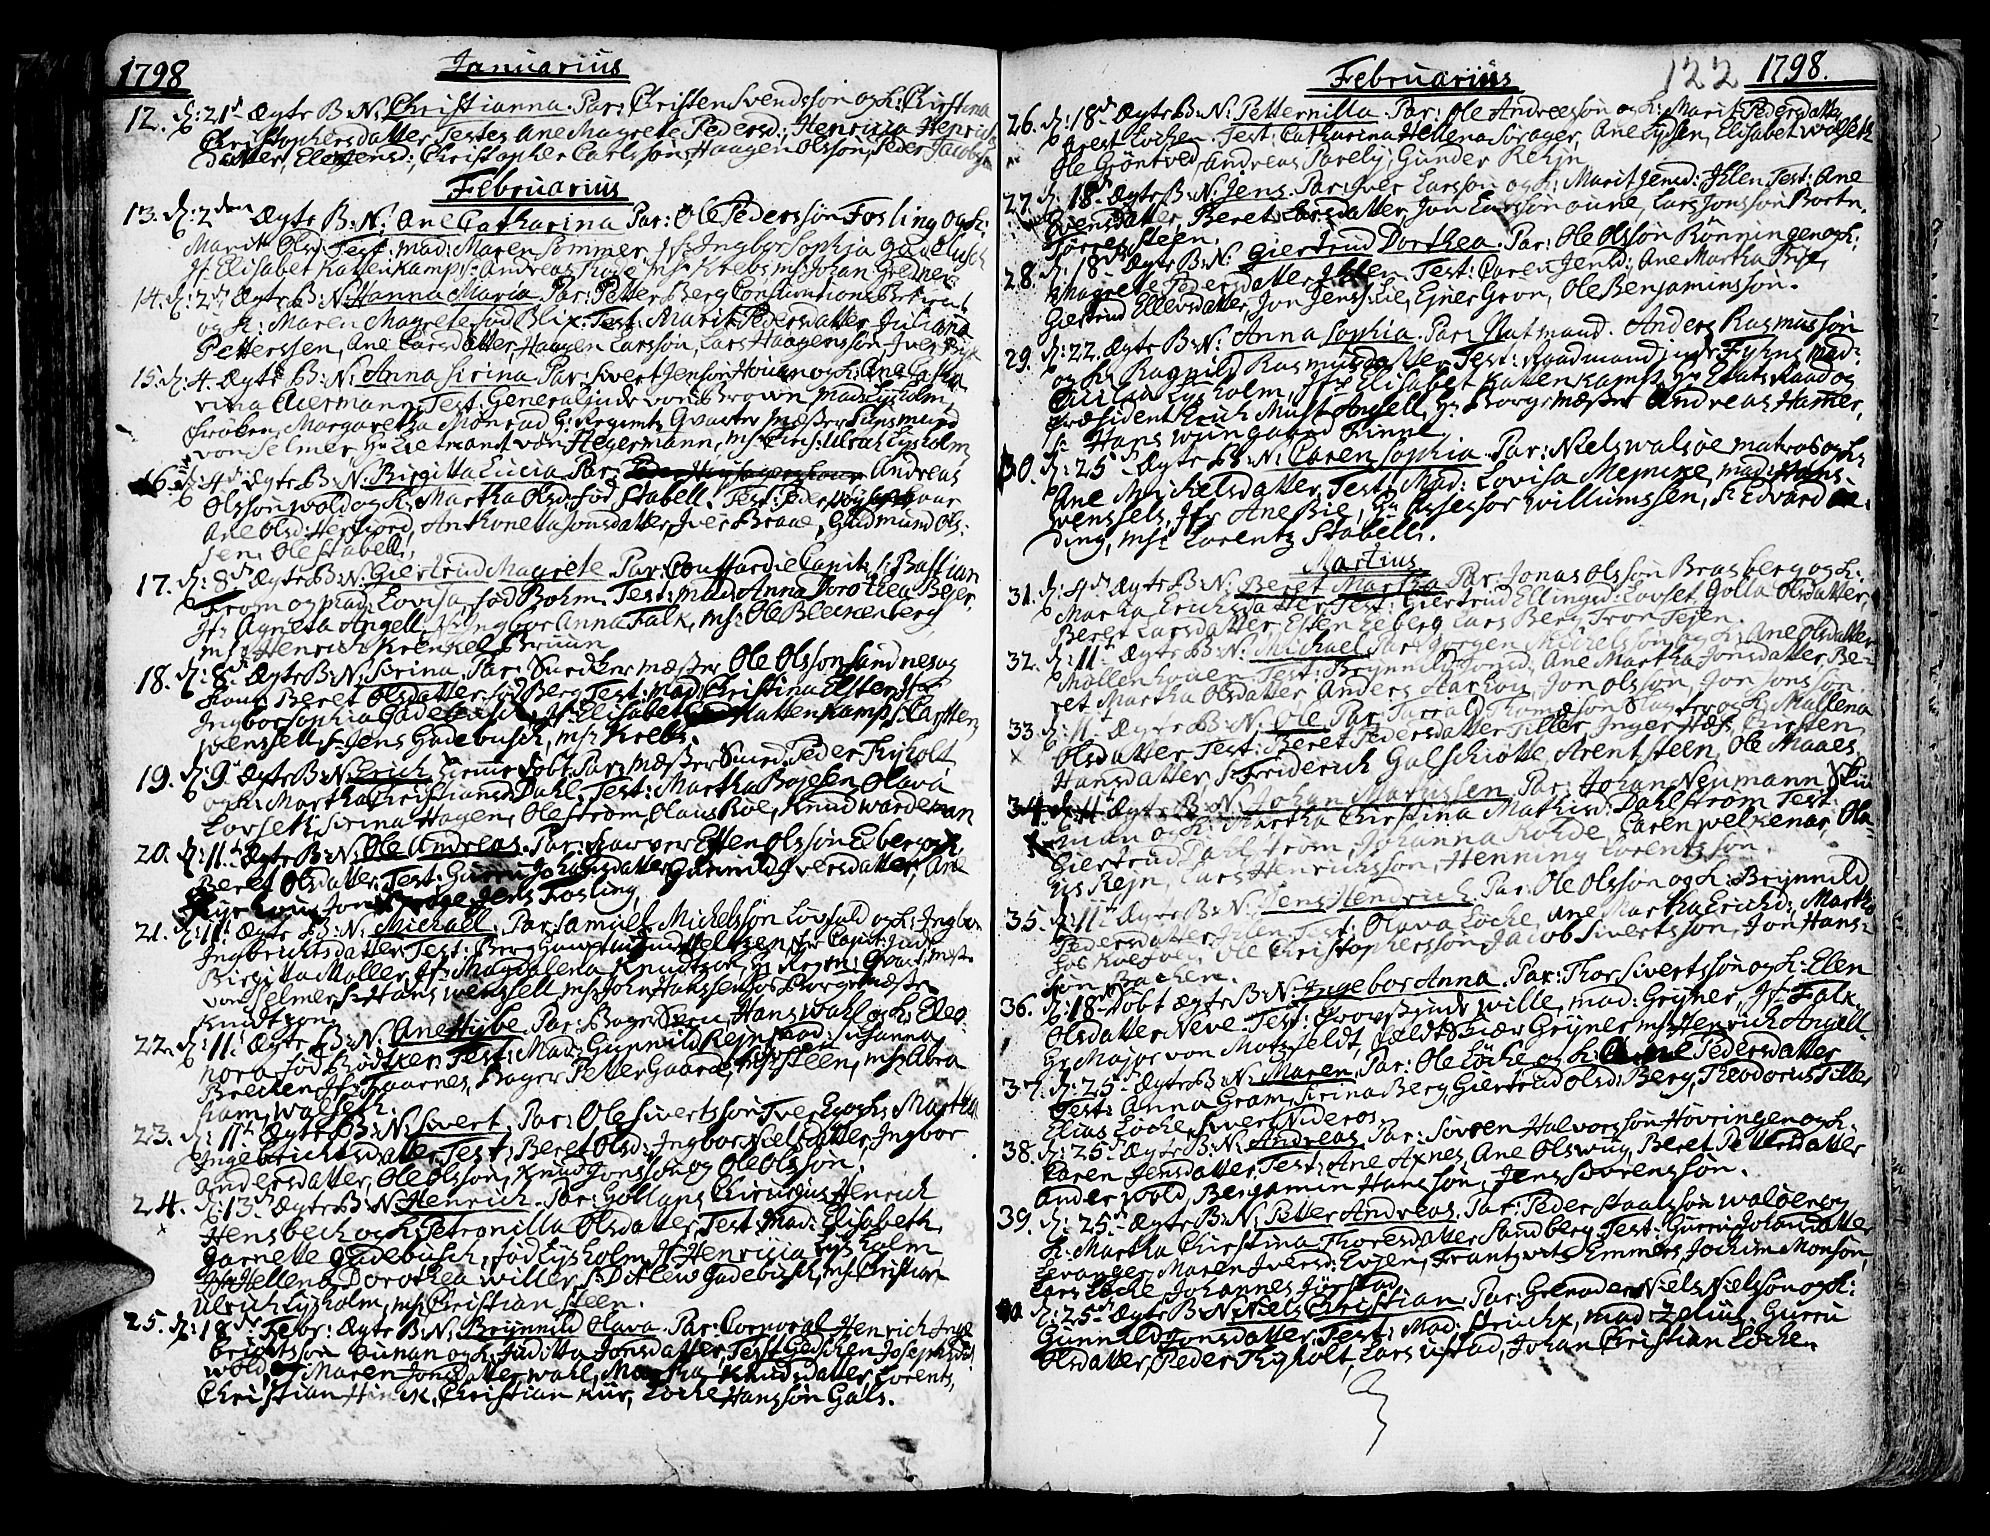 1798
Januarius
12. d: 21d Ægte B: N: Christianna. Par: Christen Svendssøn og h: Chirstina
Christophersdatter, Testes Ane Magrete Pedersd: Henricia Henrichs
datter, Jensd: Christopher Carlssøn, Haagen Olssøn, Peder Jacobs
Februarius
13. d: 2den Ægte B: N: Ane Catharina Par: Ole Pederssøn Fosling og h:
Marit Olsd: Test: mad: Maren Sommer, Jfr Ingbor Sophia Gadebusch
Jfr Elisabet Kattenkamp, Andreas, mr Krebs mr Johan Greiner
14. d: 2den Ægte B: N: Hanna Maria Par: Petter Berg Consumtions Betient
og h: Maren Magrete fød Blix. Test: Marit Pedersdatter, Juliana
Petterssen, Ane Larsdatter, Haagen Larssøn, Lars Haagenssøn, Iver
15. d: 4. Ægte B: N: Anna Sirina Par: Sivert Jenssøn Houan og h: Ane Catha
rina Auermann, Test: Generalinde von Brown, mad: Lysholm,
Frøken Margaretha Mønrad, Hr Regimts Qvarter Mæster Sigismund
von Selmer, Hr Lietnant von Hegermann, mr Chris: Ulrich Lysholm
16. d: 4de Ægte B: N: Birgitta Lucia Par: Andreas
Olssøn wold og h: Martha Olsd: fød Stabell. Test: Peder
Ane Olsd: Herfiord, Anthonetta Jonsdatter, Iver Braae, Gudmund Ols:
sen, Ole Stabell.
17. d: 8de Ægte B: N: Giertrud Magrete Par: Couffardie Capit: Hr Bastian
From og Mad: Lovisa, fød Bohm. Test: mad: Anna Dorothea Beyer,
Jfr Agneta Angell, Jfr Ingbor Anna Falk, mr: Ole Bleckenberg
mr: Henrich Krenkel Bruun
18. d: 8de Ægte B: N: Sirina, Par: Snedker mæster Ole Olssøn Sandnes og
Kone Beret Olsdatter fød Berg Test: mad: Christina Elster, Jfr
Ingbor Sophia Gadebusch, Jfr Elisabet Kattenkamp, Sr Carsten
Wenssell, Sr Jens Gadebusch, mr Krebs.
19. d: 9de Ægte B: N: Erich hiemme døbt Par: mæster Smed Peder Thyholt
og h: Martha Christiansd: Dahl, Test: Martha Boysen, Olava
Lovseth, Sirina Hagen, Ole Strøm, Olaus Roe, Knud Wardeman
20. d: 11te Ægte B: N: Ole Andreas. Par: Garver Etten Olssøn Eeberg og h:
Beret Olsdatter, Test: Gurru Johansdatter, Gunnild Iversdatter, Ane
Jens Fosling
21. d: 11te Ægte B: N: Michall. Par: Samuel Michelssøn Lovfald og h: Ingbor
Ingbrichtsdatter, Test: Berghauptmandinde, Fr. Capit: inde
Birgitta Møller, Jfr: Magdalena Knudtzon, Hr Regm: Qvart: mest:
von Selmer, Sr Hans Wenssell, mr John Hanssen hos Borgemæster
Knudtzon
22. d: 11te Ægte B: N: Ane Hybe. Par: Bager Hans Wahl og h: Eleo-
nora fød Rødtker. Test: Mad: Gunnild Rejn, mad: Susanna
Brecken, Jfr: Taarnes, Bager Petter Gaard, Steen, mr: Abra
ham Walseth.
23. d: 11te Ægte B: N: Sivert, Par: Ole Sivertssøn Tver Eg og h: Martha
Ingebrichtsdatter, Test: Beret Olsd: Ingbor Nielsdatter, Ingbor
Andersdatter, Ole Olssøn, Knud Jonssøn og Ole Olssøn.
24. d: 13de Ægte B: N: Henrich. Par: Gollaps Chirurgus Henrich
Hensbech og h: Petronilla Olsdatter, Test: Mad: Elisabeth
Garnette Gadebusch, fød Lysholm, Jfr Henricia Lysholm
Jfr Hellena Dorothea Willer, Sr: Ditlew Gadebusch, mr: Christian
Ulrich Lysholm, mr: Christian Steen.
25. d: 18de Febr: Ægte B: N: Brynnild Olava. Par: Corporal Henrich Inge
brigtssøn Bunan og h: Juditta Jonsdatter, Test: Gidschen Josephsdt
wold, Maren Jonsdatter wahl, Martha Knudsdatter, Lorents,
Christian Hinck, Christian Kür, Locke Hanssøn Gals.
Februarius
122
1798.
26. d: 18de Ægte B: N: Petternilla Par: Ole Andreessøn og h: Marit Pedersdatter
Arest Locken. Test: Catharina Hellena Sorager, Ane Lydsen, Elisabet Wolseth
Ole Grøntved, Andreas Parely, Gunder Rejn
27. d: 18de Ægte B: N: Jens. Par: Iver Larssøn og h: Marit Jensd: Ihlen. Test: Ane
Svensdatter, Beret Larsdatter, Jon Larssøn Oune, Lars Jonssøn Bortn.
Torres Steen.
28. d: 18de Ægte B: N: Giertrud Dorthea. Par: Ole Olssøn Rønningen og h:
Magrete Pedersdatter Ihlen. Test: Caren Jensd: Ane Martha Bye,
Giertrud Ellevsdatter, Jon Jenss: Lie, Ejner Gron, Ole Benjaminssøn.
29. d: 22. Ægte B: N: Anna Sophia. Par: Nutmand. Anders Rasmussøn
og h: Ragnild Rasmusdatter Test: Raadmandinde Fyhns mad:
Cicilia Lysholm, Jfr Elisabet Kattenkamp, Hr Etats Raad og
Præsident Erich Must Angell, Hr Borgemæster Andreas Hamer,
Sr Hans Wiingaard Finne
30. d: 25de Ægte B: N: Caren Sophia. Par: Niels Walsøe matros og h:
Ane Michelsdatter, Test: Mad: Lovisa Meincke, mad: Hans
Wenssels, Jfr Ane Bie, Hr Assessor Willumssen, Sr Edvard
ding, mr: Lorentz Stabell.
Martius
31. d: 4de Ægte B: N: Beret Martha Par: Jonas Olssøn Brasberg og h:
Martha Erichsdatter Test: Giertrud Ellingsd: Lovset Golla Olsdatter,
Beret Larsdatter, Esten Eeberg, Lars Berg, Tron Tejen.
32. d: 11te Ægte B: N: Michael Par: Jørgen Michelssøn og h: Ane Olsdatter
Møllenhouen Test: Brynnild Jonsd: Ane Martha Jonsdatter, Be-
ret Martha Olsdatter, Anders Aarhou, Jon Olssøn, Jon Jonssøn.
33. d: 11te Ægte B: N: Ole Par: Tarrald Thomæssøn og h: Mallena
Olsdatter, Test: Beret Pedersdatter Tiller, Inger Høf, Chirsten
Hansdatter, Sr Friderich Galschiøtte, Arent Steen, Ole Maaes.
34. d: 11te Ægte B: N: Johan Marthissen Par: Johan Neumann
man og h: Martha Chirstina Mathisd: Dahlstrøm Test:
Giertrud Dahlstrøm, Johanna Rohde, Caren Welkener, Ola-
us Rejn, Lars Henrichssøn, Henning Lorentssøn.
35. d: 11te Ægte B: N: Jens Hendrich Par: Ole Olssøn og h: Brynnild
Pedersdatter Ihlen. Test: Olava Løcke, Ane Martha Erichsd: Martha
Ole Christopherssøn, Jacob Sivertssøn, Jon Hans-
søn Backen.
36. d: 18de Døbt Ægte B: N: Ingebor Anna. Par: Thor Sivertssøn og h: Elen
Olsdatter Neve. Test: Provstinde Wille, mad: Gryner, Jfr Falk,
Hr Major von Motzfeldt, Feldtskiær Gryner, mr: Henrich Angell.
37. d: 25de Ægte B: N: Maren. Par: Ole Løcke og h: Pedersdatter
Test: Anna Gram, Sirina Berg, Giertrud Olsd: Berg, Theodorus Tiller
Elias Løcke, Sivert Nideros.
38. d: 25de Ægte B: N: Andreas. Par: Sovren Halvorssøn Høvringen og h:
Caren Jensdatter, Test: Ane Axnes, Ane Olswug, Beret Pettersdatter
Ander Wold, Benjamin Hanssøn, Jens Sørenssøn.
39. d: 25de Ægte B: N: Petter Andreas. Par: Peder Staalssøn Waløer og
h: Martha Chirstina Thoresdatter Sandberg Test: Gurru Johansdatter
Levanger, Maren Iversd: Evjen, Frantz Emmers, Jochim Monsøn,
Lars Løcke, Johannes Jørstad
40. d: 25de Ægte B: N: Niels Christian. Par: Grenader Niels Nielssøn og h:
Gunnild Jonsdatter, Test: Mad: Brück, mad: Zeliul, Gurru
Olsdatter, Peder Thyholt, Lars Ustad, Johan Christian Løcke.